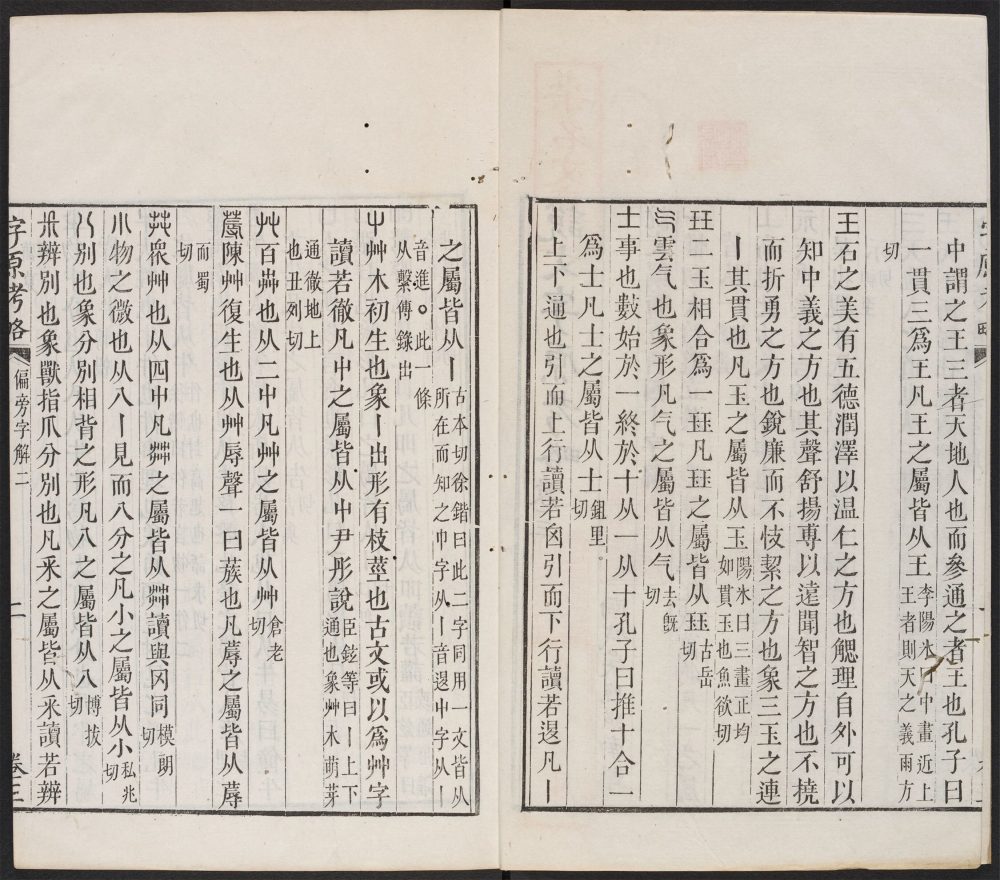 中謂之王三者天地人也而參通之者王也孔子曰
一貫三爲王凡王之屬皆从王李陽冰曰中畫近上王者則天之義雨方
切
王石之美有五德潤澤以温仁之方也䚡理自外可以
知中義之方也其聲舒揚専以遠聞智之方也不橈
而折勇之方也銳廉而不忮絜之方也象三玉之連
丨其貫也凡玉之屬皆从玉陽冰曰三畫正均如貫玉也魚欲切
玨二玉相合爲一玨凡玨之屬皆从玨古岳切
气雲气也象形凡气之屬皆从气去旣切
士事也數始於一終於十从一从十孔子曰推十合一
爲士凡士之屬皆从士鉏里切
丨上下通也引而上行讀若囟引而下行讀若𨓤凡丨
之屬皆从丨古本切徐鍇曰此二字同用一文皆从所在而知之中字从丨音𨓤中字从丨
音進。此一條从繫傳錄出
屮艸木初生也象丨出形有枝莖也古文或以爲艸字
讀若徹凡屮之屬皆从屮尹彤說臣鉉等曰丨上下通也象艸木萌芽
通徹地上也丑列切
艸百芔也从二屮凡艸之屬皆从艸倉老切
蓐陳艸復生也从艸辱聲一曰蔟也凡蓐之屬皆从蓐
而蜀切
茻衆艸也从四屮凡茻之屬皆从茻讀與冈同模朗切
小物之微也从八丨見而八分之凡小之屬皆从小私兆切
八別也象分別相背之形凡八之屬皆从八博拔切
釆辨別也象獸指爪分別也凡釆之屬皆从釆讀若辨
字原考略
偏旁字解二
二
卷三